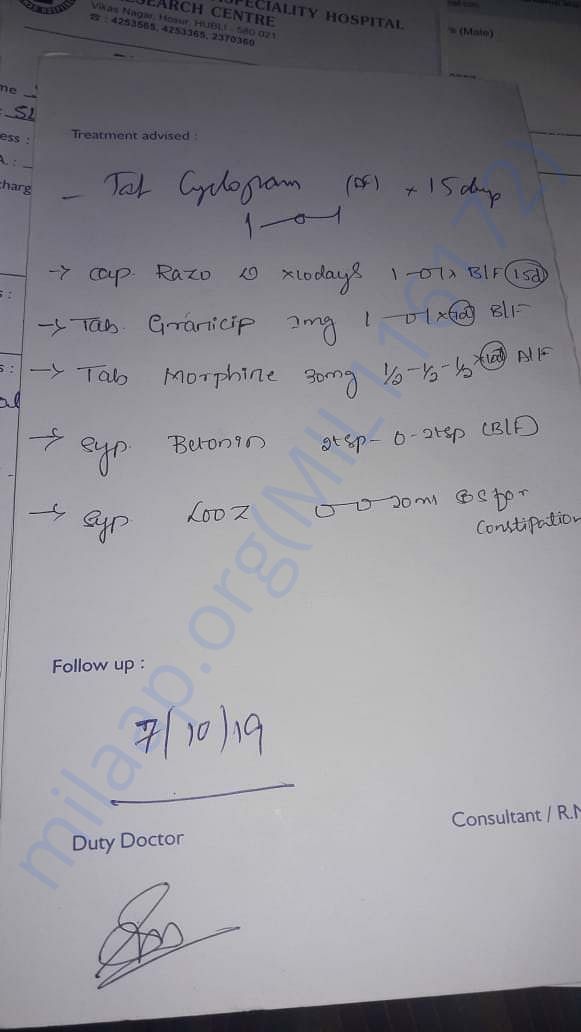 SPECIALITY HOSPITAL
SEARCH CENTRE
Vikas Nagar, Hosur, HUBLI - 580 021
☎ : 4253565, 4253365, 2370360
s (Male)
me
ess :
A. :
charg
Treatment advised :
- Tab Cyclogram (DF) x 15 days
1-0-1
→ cap. Razo 20 x10days 1-0-1x B/F 15d
→ Tab. Granicip 2mg 1-0-1x10d B/F
→ Tab Morphine 30mg 1/2-1/2-1/2 x10d A/F
→ Syp. Betonin 2tsp-0-2tsp (B/F)
→ Syp LOOZ 0-0-20ml for
Constipation
Follow up :
7/10/19
Duty Doctor
Consultant / R.M
milaap.org(MIL116172)